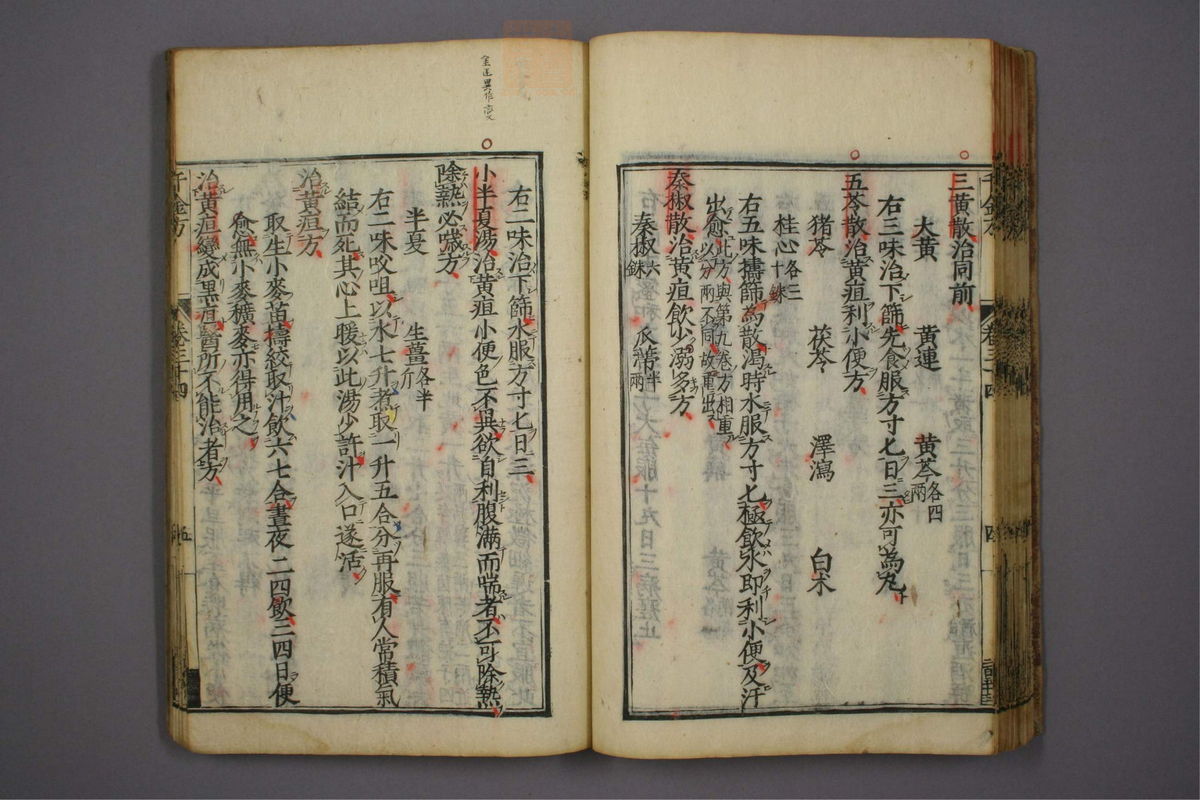 三黄散治同前
大黄 黄連 黄芩各四兩
右三味治下篩先食服方寸匕日三亦可為丸
五苓散治黄疸利小便方
猪苓 茯苓 澤瀉 白术
桂心各三十銖
右五味擣篩為散渴時水服方寸匕極飲水即利小便及汗
出愈此方與第九卷方相重以分兩不同故重出
秦椒散治黄疸飲少溺多方
秦椒六銖 瓜蒂半兩
右二味治下篩水服方寸匕日三
小半夏湯治黄疸小便色不異欲自利腹滿而喘者不可除熱
除熱必噦方
半夏 生薑各半斤
右二味㕮咀以水七升煮取一升五合分再服有人常積氣
結而死其心上暖以此湯少許汁入口遂活
治黄疸方
取生小麥苗擣絞取汁飲六七合晝夜三四飲三四日便
愈無小麥穬麥亦得用之
治黄疸變成黑疸醫所不能治者方
千金方 卷三十四 五